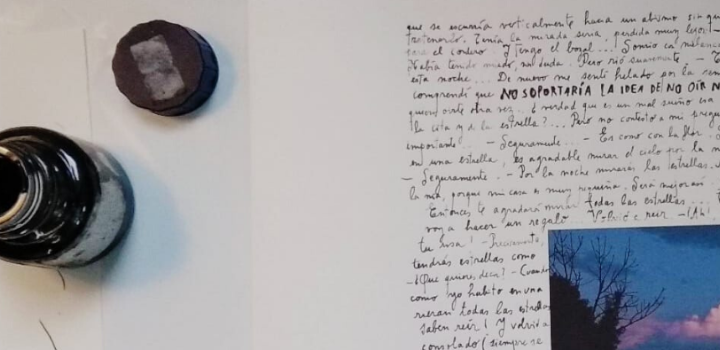 que se escurría verticalmente hacia un abismo sin que
tratenerlo. Tenía la mirada seria, perdida muy lejos! -
para el cordero. Y tengo el bozal... Sonrió con melanco
Había tenido miedo, sin duda. Pero rió suavemente. -
esta noche... De nuevo me sentí helado por la
comprendí que NO SOPORTARÍA LA IDEA DE NO OIR N
quiero oirte otra vez... ¿verdad que es un mal sueño esa
la cita y de la estrella?... Pero no contestó a mi pregu
importante - Seguramente... - Es como con la flor.
en una estrella, es agradable mirar el cielo por la n
- Seguramente. - Por la noche mirarás las estrellas.
la mía, porque mi casa es muy pequeña. Será mejor así.
Entonces te agradará mirar todas las estrellas...
voy a hacer un regalo... Volvió a reír. - ¡Ah!
tu risa! - Precisamente,
tendrás estrellas como
- ¿Qué quieres decir? - Cuando
como yo habito en una
rieran todas las estrellas
saben reír! Y volvió a
consolado (siempre se